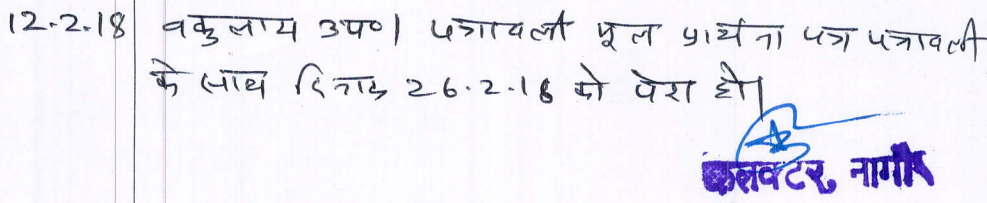 12.2.18 वकुलाय उप०। पत्रावली मूल प्रार्थना पत्र पत्रावली
के साथ दिनांक 26.2.18 को पेश हो।
कलक्टर, नागौर